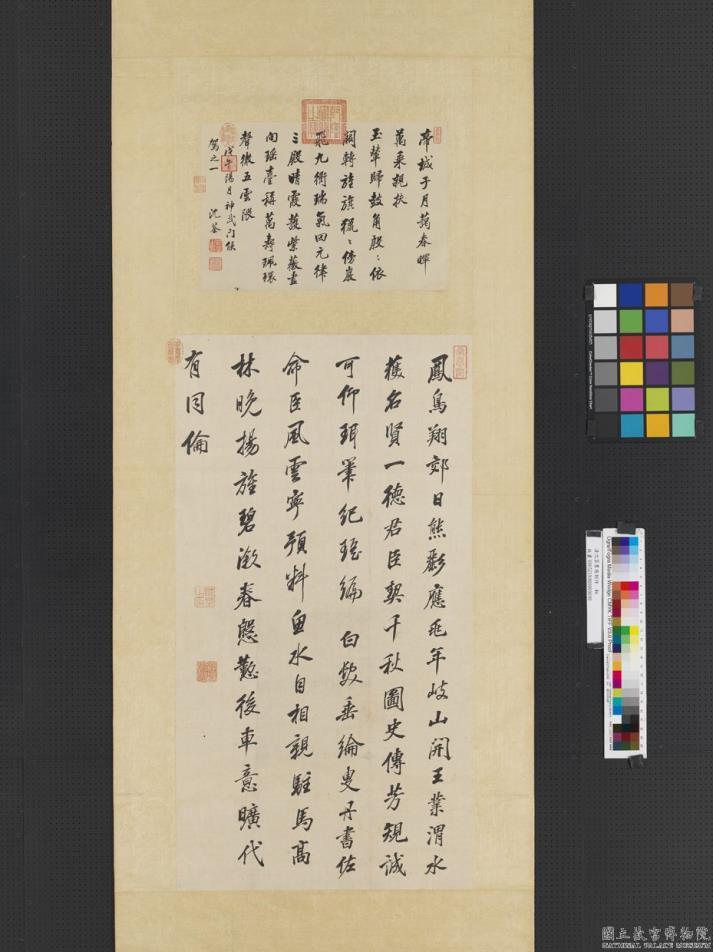 帝城子月藹春暉
萬乘親扶
玉輦歸鼓角殷〻依
闕轉旌旗獵〻傍
飛九衢瑞氣回元律
三殿晴霞護紫薇直
向瑤臺稱萬壽珮環
聲徹五雲隈
戊午陽月神武門候
駕之一 沈荃
鳳鳥翔郊日熊彲應兆年岐山開王業渭水
獲名賢一德君臣契千秋圖史傳芳規誠
可仰珥筆紀瑤編 白髮垂綸叟丹書佐
命臣風雲寧預料魚水自相親駐馬高
林晚揚旌碧漵春慇懃後車意曠代
有同倫
國立故宮博物院
NATIONAL PALACE MUSEUM